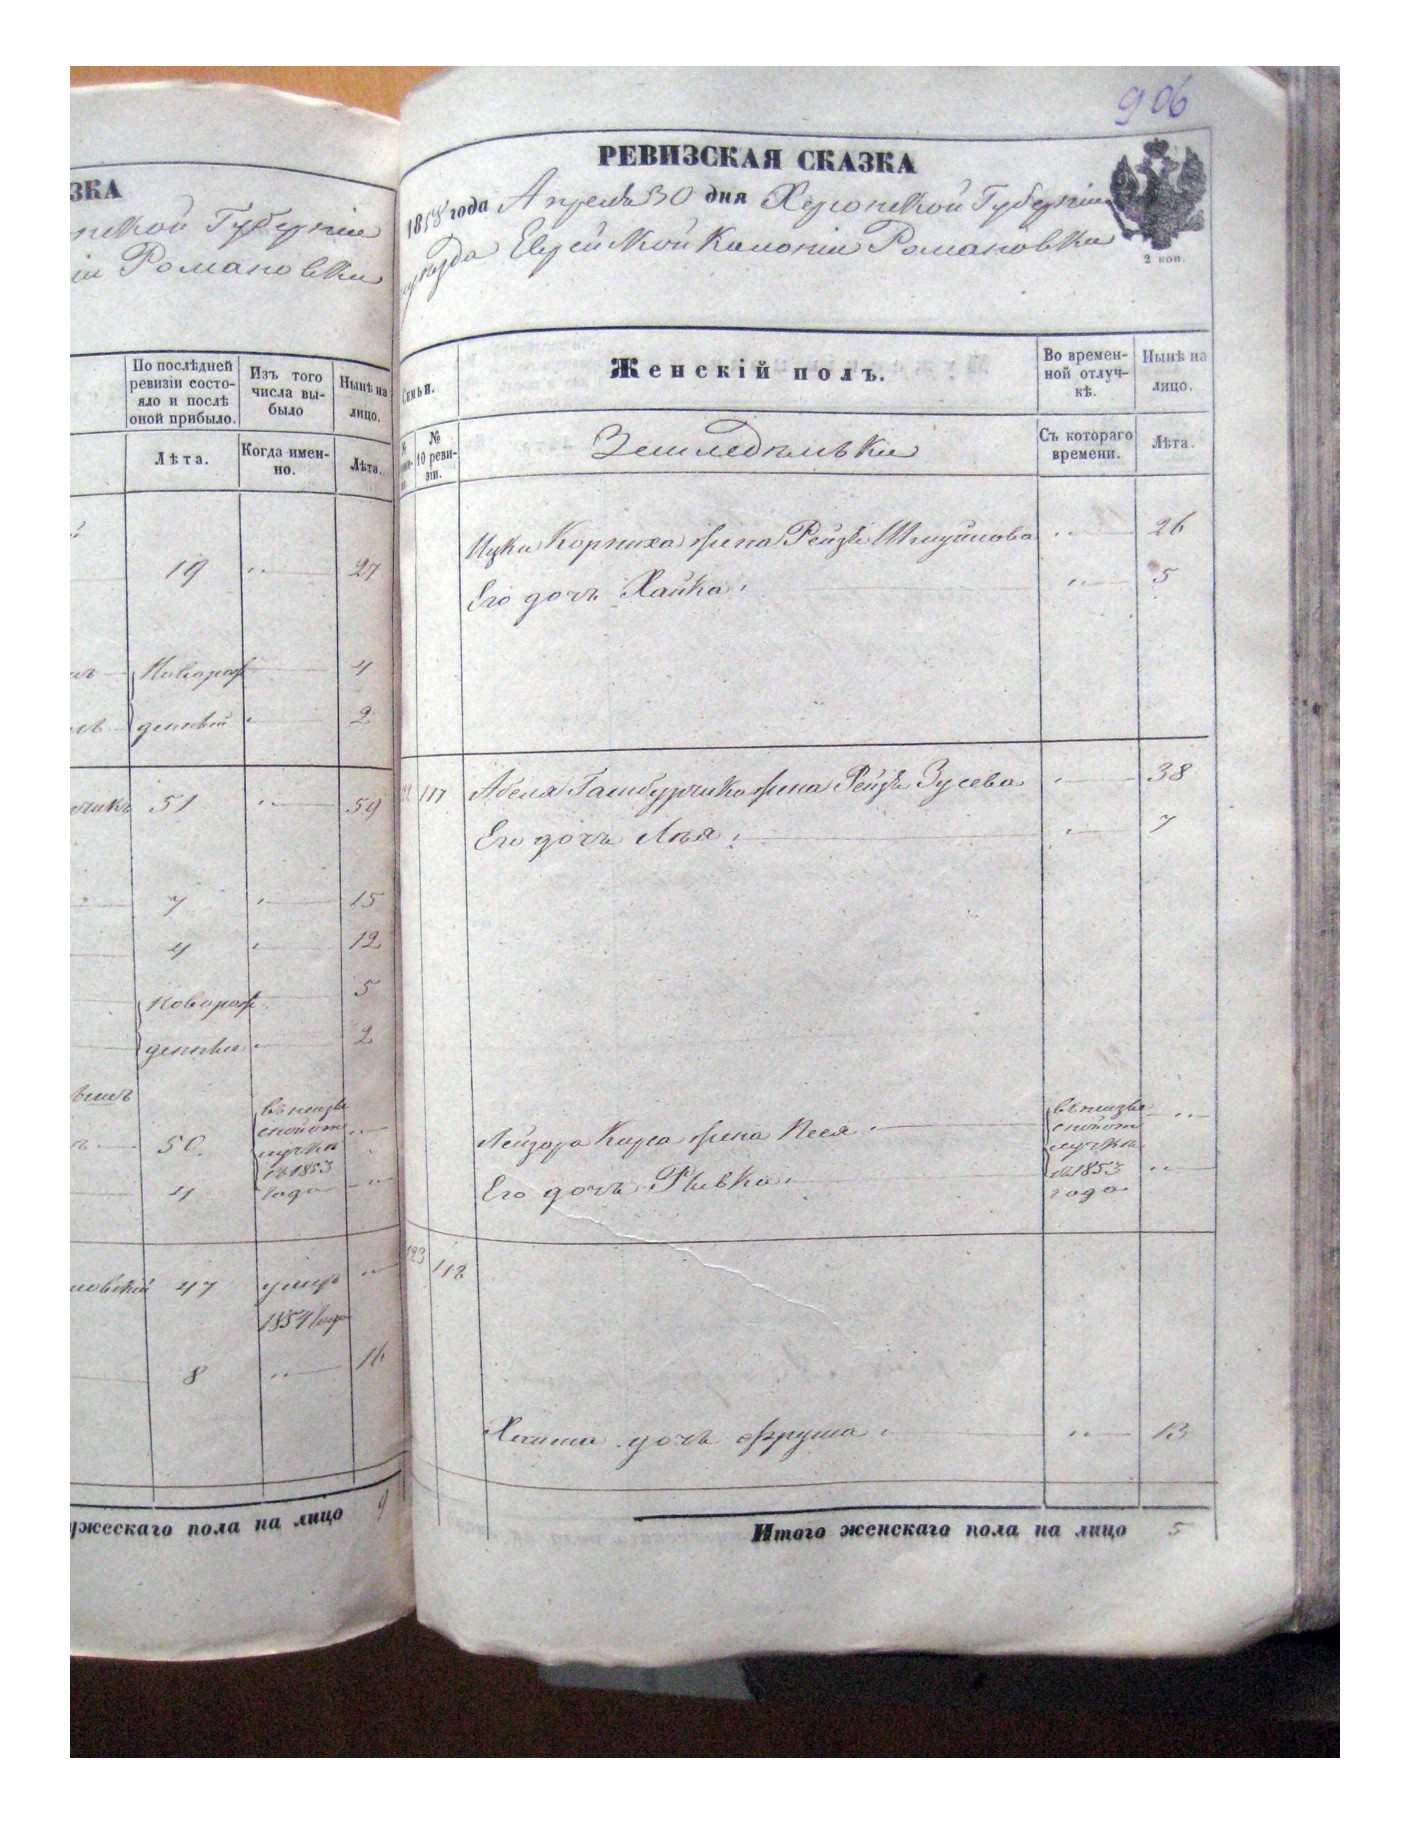 ЗКА
нской Губерніи
іи Романовки
По послѣдней
ревизіи состо-
яло и послѣ
оной прибыло.
Изъ того
числа вы-
было
Нынѣ на
лицо.
Лѣта.
Когда имен-
но.
Лѣта.
19 " 27
Новорож 4
денный " 2
чикъ 51 " 59
7 " 15
4 " 12
Новорож 5
денные " 2
50. въ неизвѣ
стной от
лучкѣ
съ 1853
4 года "
новскій 47 умер "
1854 года
8 " 16
ужескаго пола на лицо 9
906
РЕВИЗСКАЯ СКАЗКА
1858 года Апреля 30 дня Херсонской Губерніи
уѣзда Еврейской Колоніи Романовки
2 коп.
Семьи.
Женскій полъ.
Во времен-
ной отлуч-
кѣ.
Нынѣ на
лицо.
№
10 реви-
зіи.
Земледѣлки
Съ котораго
времени.
Лѣта.
Ицки Корниха жена Рейзя Шмуйлова " 26
Его дочь Хайка. " 5
122 117 Абеля Гамбурчика жена Рейзя Зусева " 38
Его дочь Лея. " 7
Лейзора Кирса жена Песя " въ неизвѣ "
стной от
лучкѣ
Его дочь Ривка. съ 1853 "
года
123 118
Хаима дочь Фрума. " 13
Итого женскаго пола на лицо 5